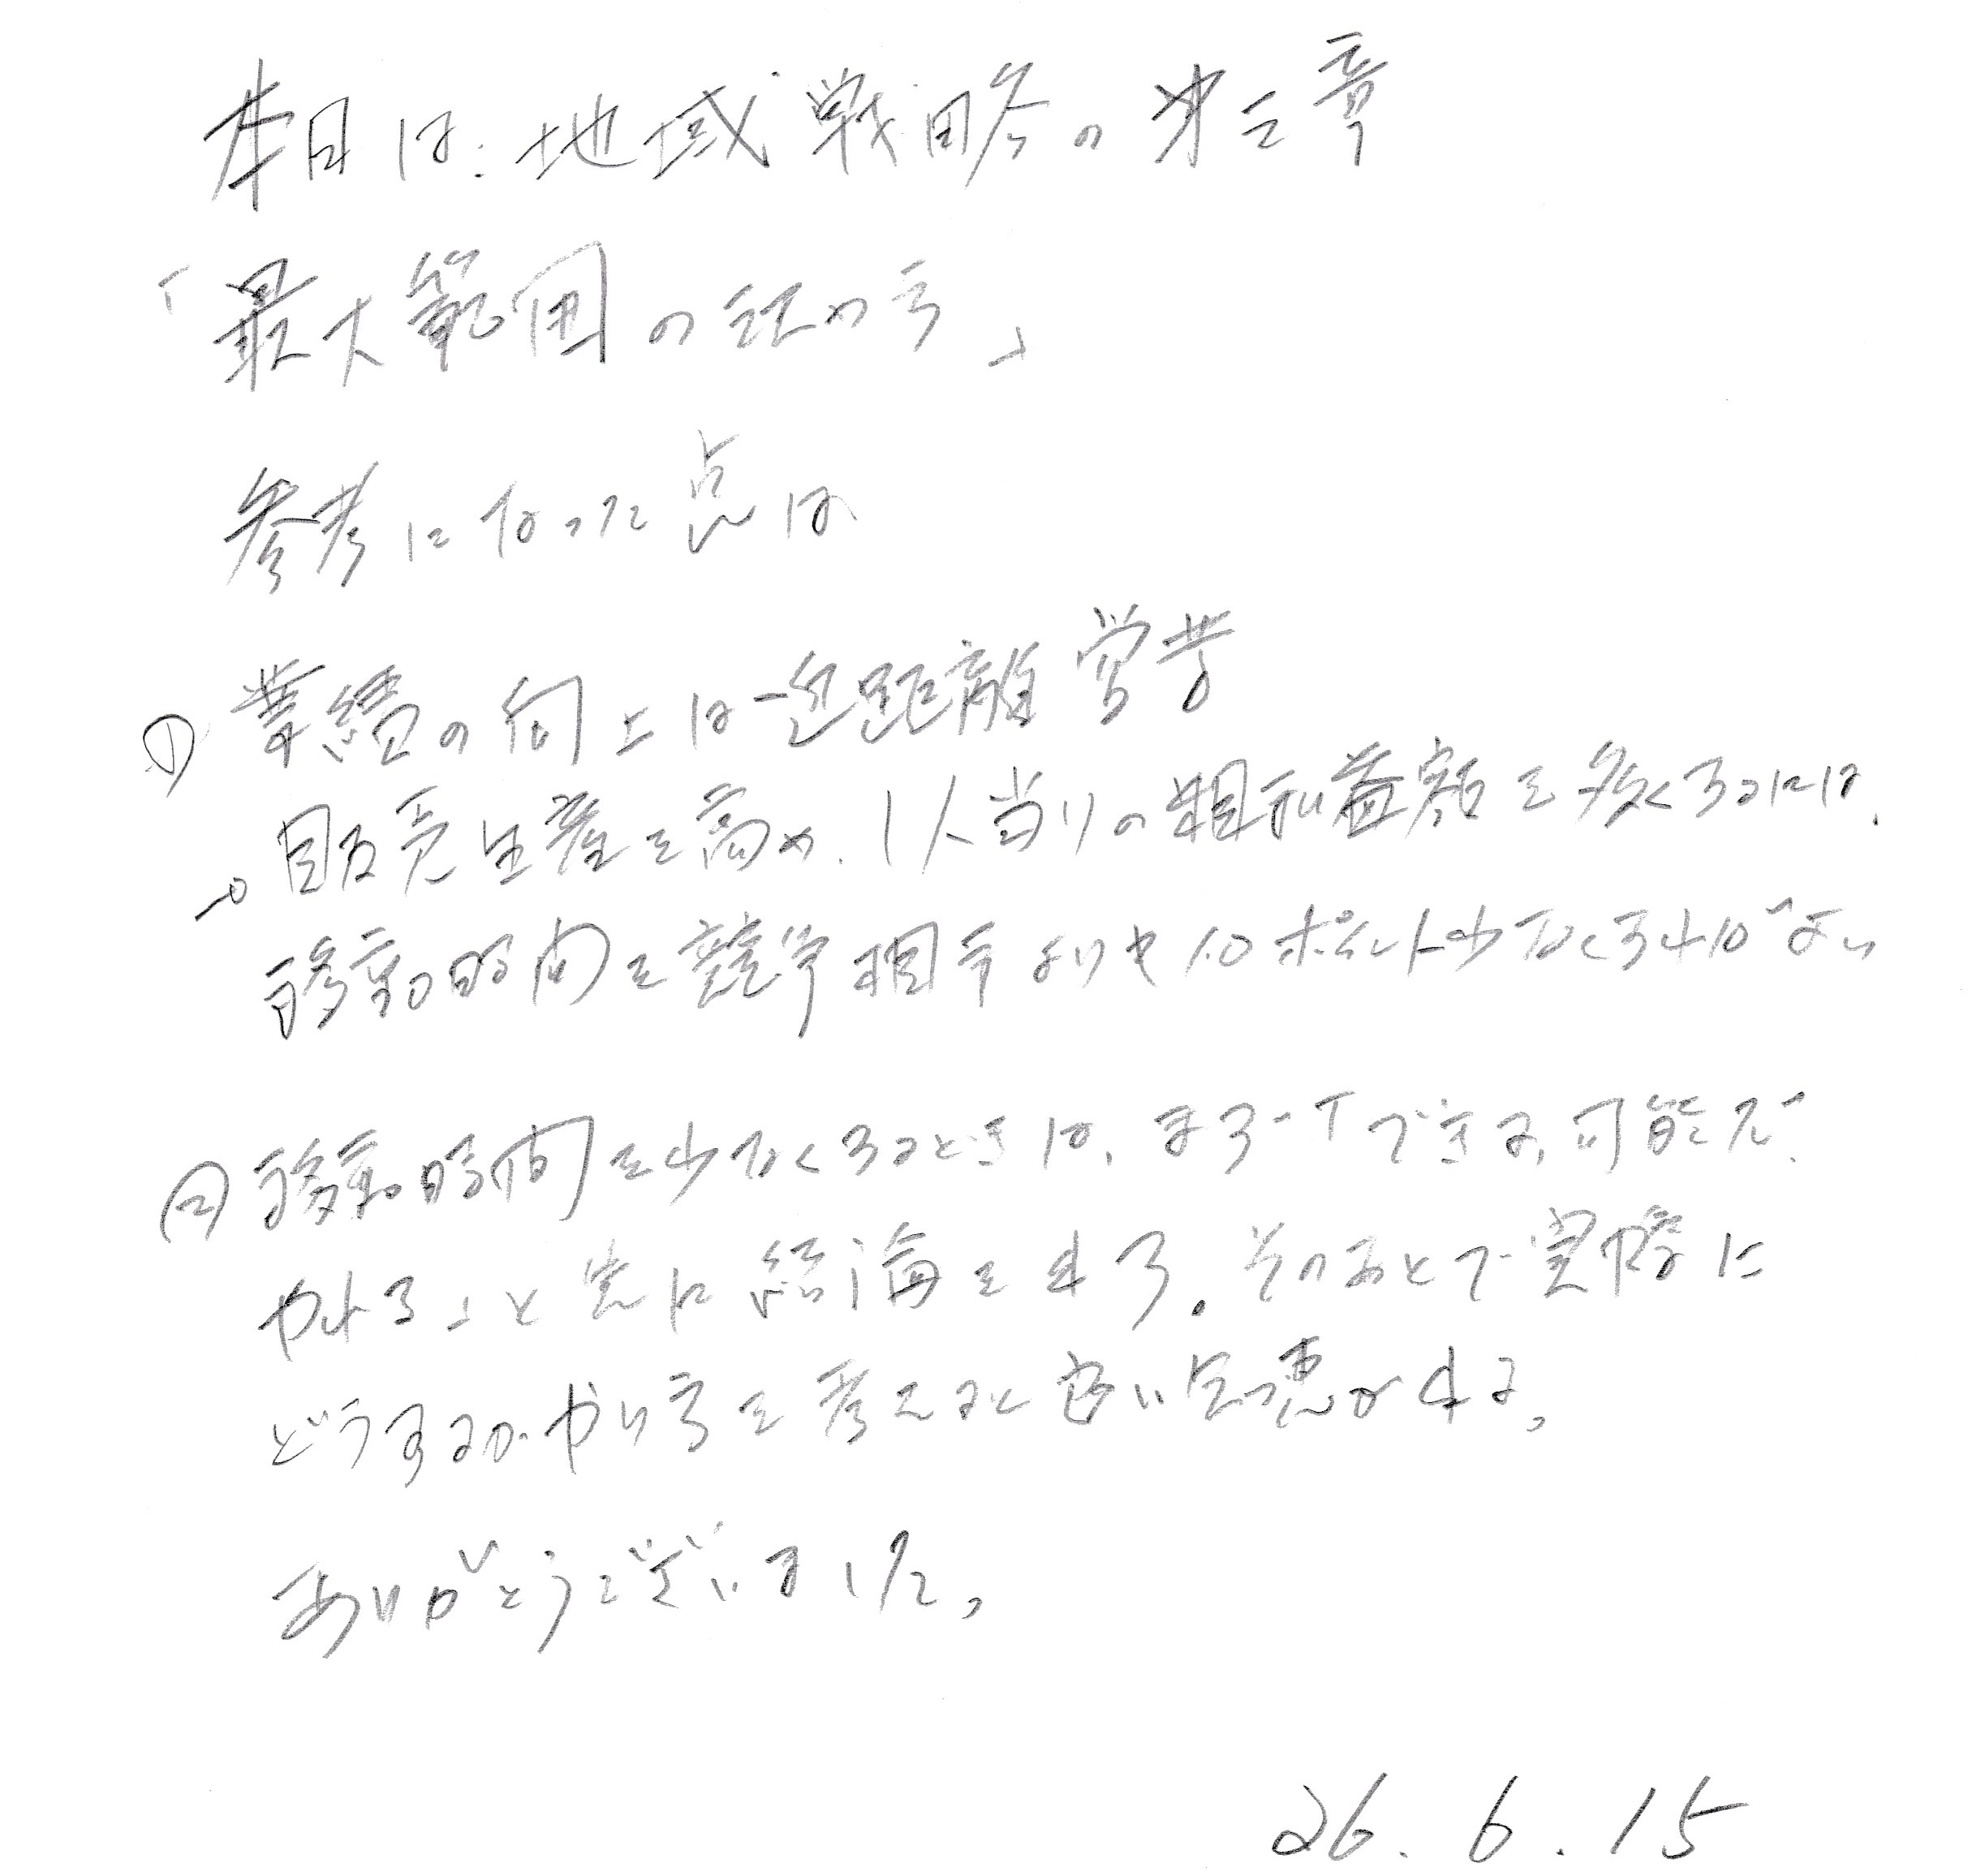 本日は、地域戦略の第三章
「最大範囲の決め方」
参考になった点は
① 業績の向上は近距離営業
→販売生産を高め、1人当りの粗利益額を多くするには、
移動時間を競争相手よりも10ポイント少なくすればよい
② 移動時間を少なくするときは、まず「できる、可能だ、
やれる」と先に結論を出す。そのあとで実際に
どうするかやり方を考えると良い知恵が出る。
ありがとうございました。
26.6.15